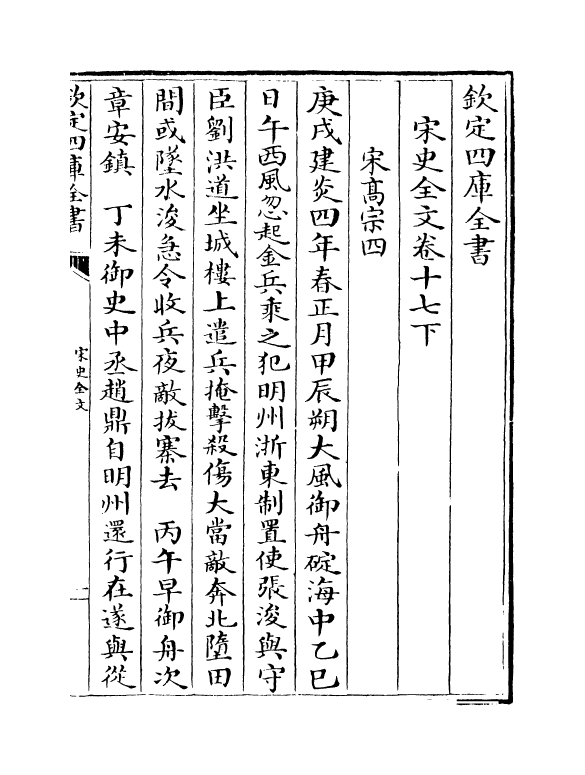 欽定四庫全書
宋史全文卷十七下
宋髙宗四
庚戌建炎四年春正月甲辰朔大風御舟碇海中乙巳
日午西風忽起金兵乘之犯明州浙東制置使張浚與守
臣劉洪道坐城樓上遣兵掩擊殺傷大當敵奔北墮田
間或墜水浚急令收兵夜敵拔寨去 丙午早御舟次
章安鎮 丁未御史中丞趙鼎自明州還行在遂與從
欽定四庫全書
宋史全文